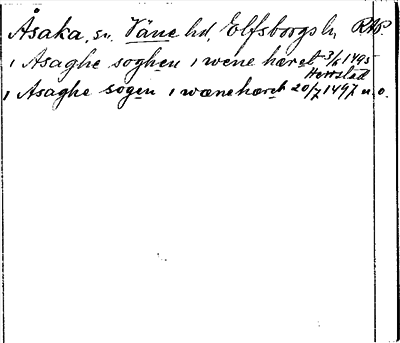 Åsaka, sn. Väne hd, Elfsborgs l. RAP.
i Asaghe soghen i wene hæret 3/6 1495
Herrstad
i Asaghe sogen i wænehæret 20/7 1497 u. o.